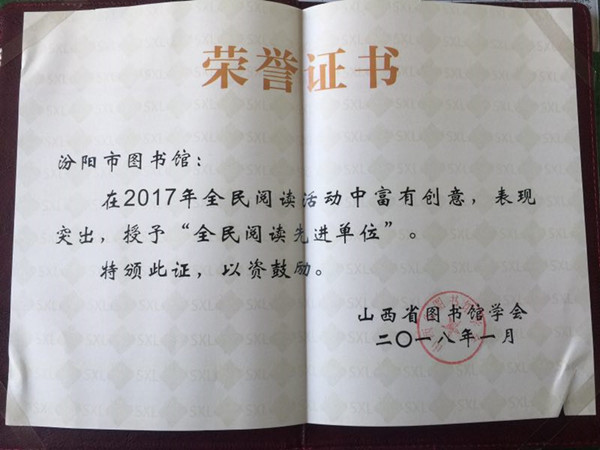 荣誉证书
汾阳市图书馆：
在2017年全民阅读活动中富有创意，表现
突出，授予“全民阅读先进单位”。
特颁此证，以资鼓励。
山西省图书馆学会
二〇一八年一月